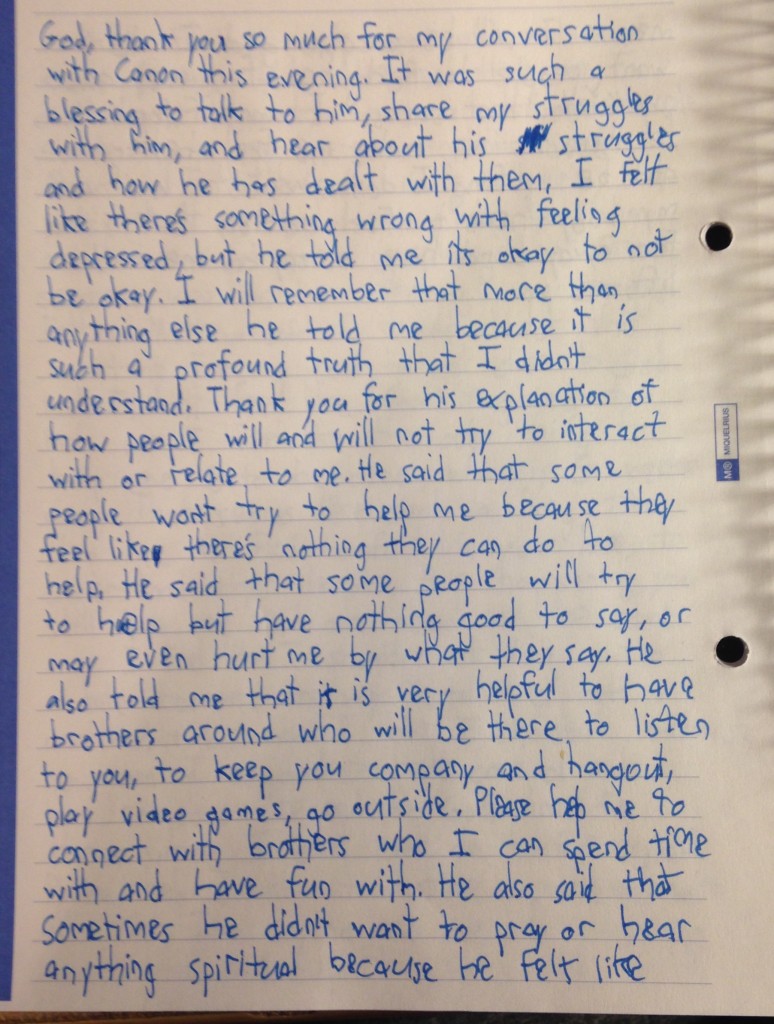 God, thank you so much for my conversation
with Canon this evening. It was such a
blessing to talk to him, share my struggles
with him, and hear about his struggles
and how he has dealt with them, I felt
like there's something wrong with feeling
depressed, but he told me its okay to not
be okay. I will remember that more than
anything else he told me because it is
such a profound truth that I didn't
understand. Thank you for his explanation of
how people will and will not try to interact
with or relate to me. He said that some
people won't try to help me because they
feel like there's nothing they can do to
help. He said that some people will try
to help but have nothing good to say, or
may even hurt me by what they say. He
also told me that it is very helpful to have
brothers around who will be there to listen
to you, to keep you company and hangout,
play video games, go outside. Please help me to
connect with brothers who I can spend time
with and have fun with. He also said that
sometimes he didn't want to pray or hear
anything spiritual because he felt like
MIQUELRIUS